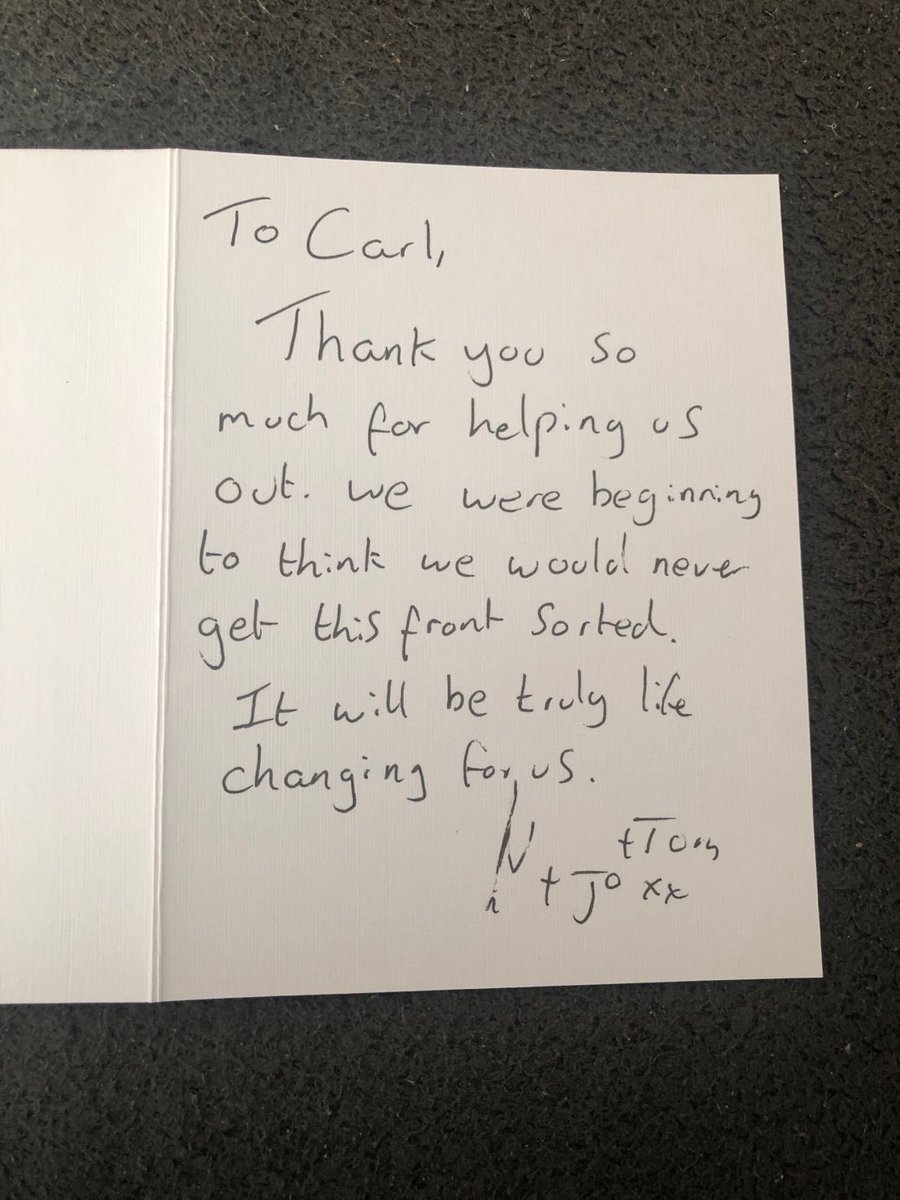 To Carl,
Thank you so
much for helping us
out. we were beginning
to think we would never
get this front sorted.
It will be truly life
changing for us.
+Tom
+ Jo xx